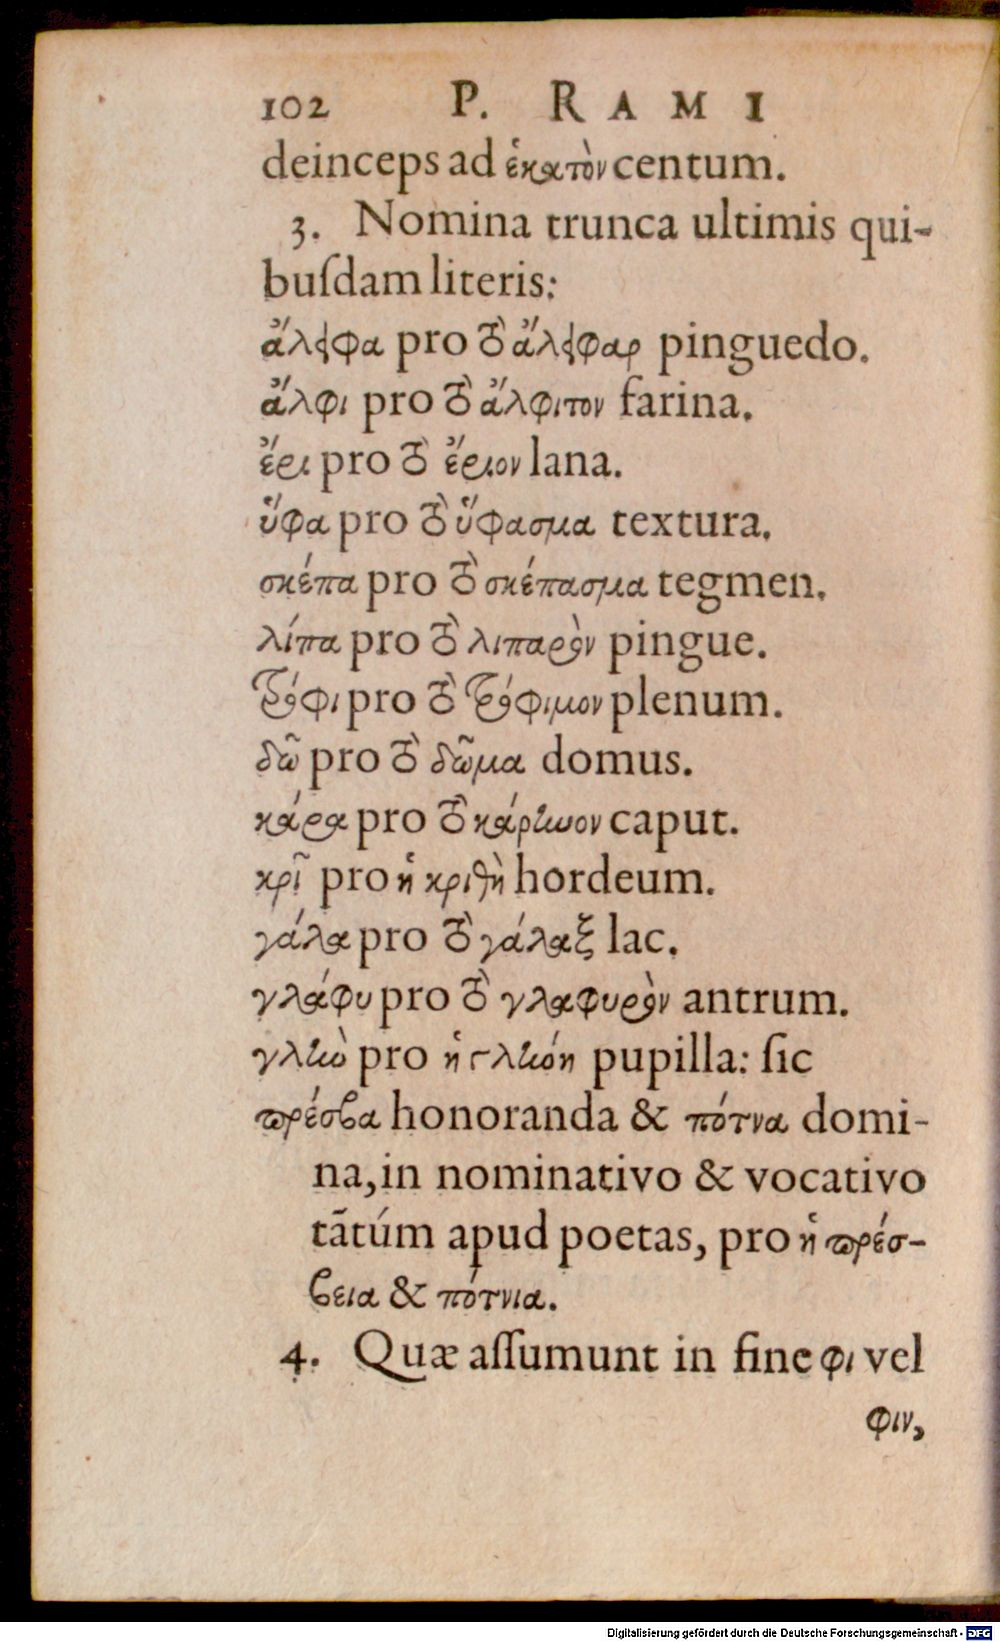 102 P. RAMI
deinceps ad ἑκατὸν centum.
3. Nomina trunca ultimis qui-
buſdam literis:
ἄλειφα pro τὸ ἄλειφαρ pinguedo.
ἄλφι pro τὸ ἄλφιτον farina.
ἔρι pro τὸ ἔριον lana.
ὕφα pro τὸ ὕφασμα textura.
σκέπα pro τὸ σκέπασμα tegmen.
λίπα pro τὸ λιπαρὸν pingue.
τρόφι pro τὸ τρόφιμον plenum.
δῶ pro τὸ δῶμα domus.
κάρα pro τὸ κάρηνον caput.
κρῖ pro ἡ κριθὴ hordeum.
γάλα pro τὸ γάλαξ lac.
γλάφυ pro τὸ γλαφυρὸν antrum.
γλὴν pro ἡ γλήνη pupilla: ſic
πρέσβα honoranda & πότνα domi-
na, in nominativo & vocativo
tātúm apud poetas, pro ἡ πρέσ-
βεια & πότνια.
4. Quæ aſſumunt in fine φι vel
φιν,
Digitalisierung gefördert durch die Deutsche Forschungsgemeinschaft - DFG